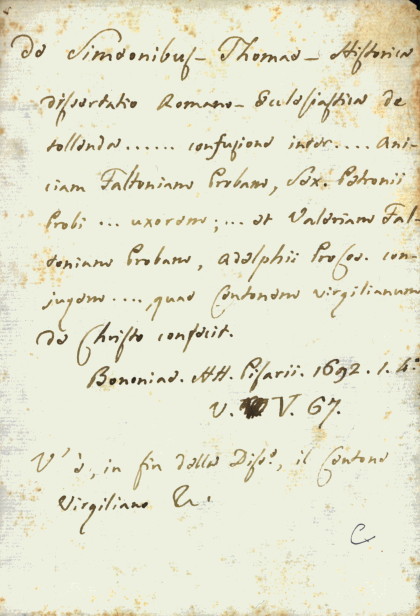 De Simeonibus Thomae Historica
dissertatio Romano-Ecclesiastica de
tollenda...... confusione inter.... Ani-
ciam Faltoniam Probam, Sex. Petronii
Probi ... uxorem;... et Valeriam Fal-
doniam Probam, Adelphii Procos. con-
jugem ...., quae Centonem virgilianum
de Christo confecit.
Bononiae. HH. Pisarii. 1692. 1. 4°
V. V. 67.
V'è, in fin della Diss.e, il Centone
Virgiliano